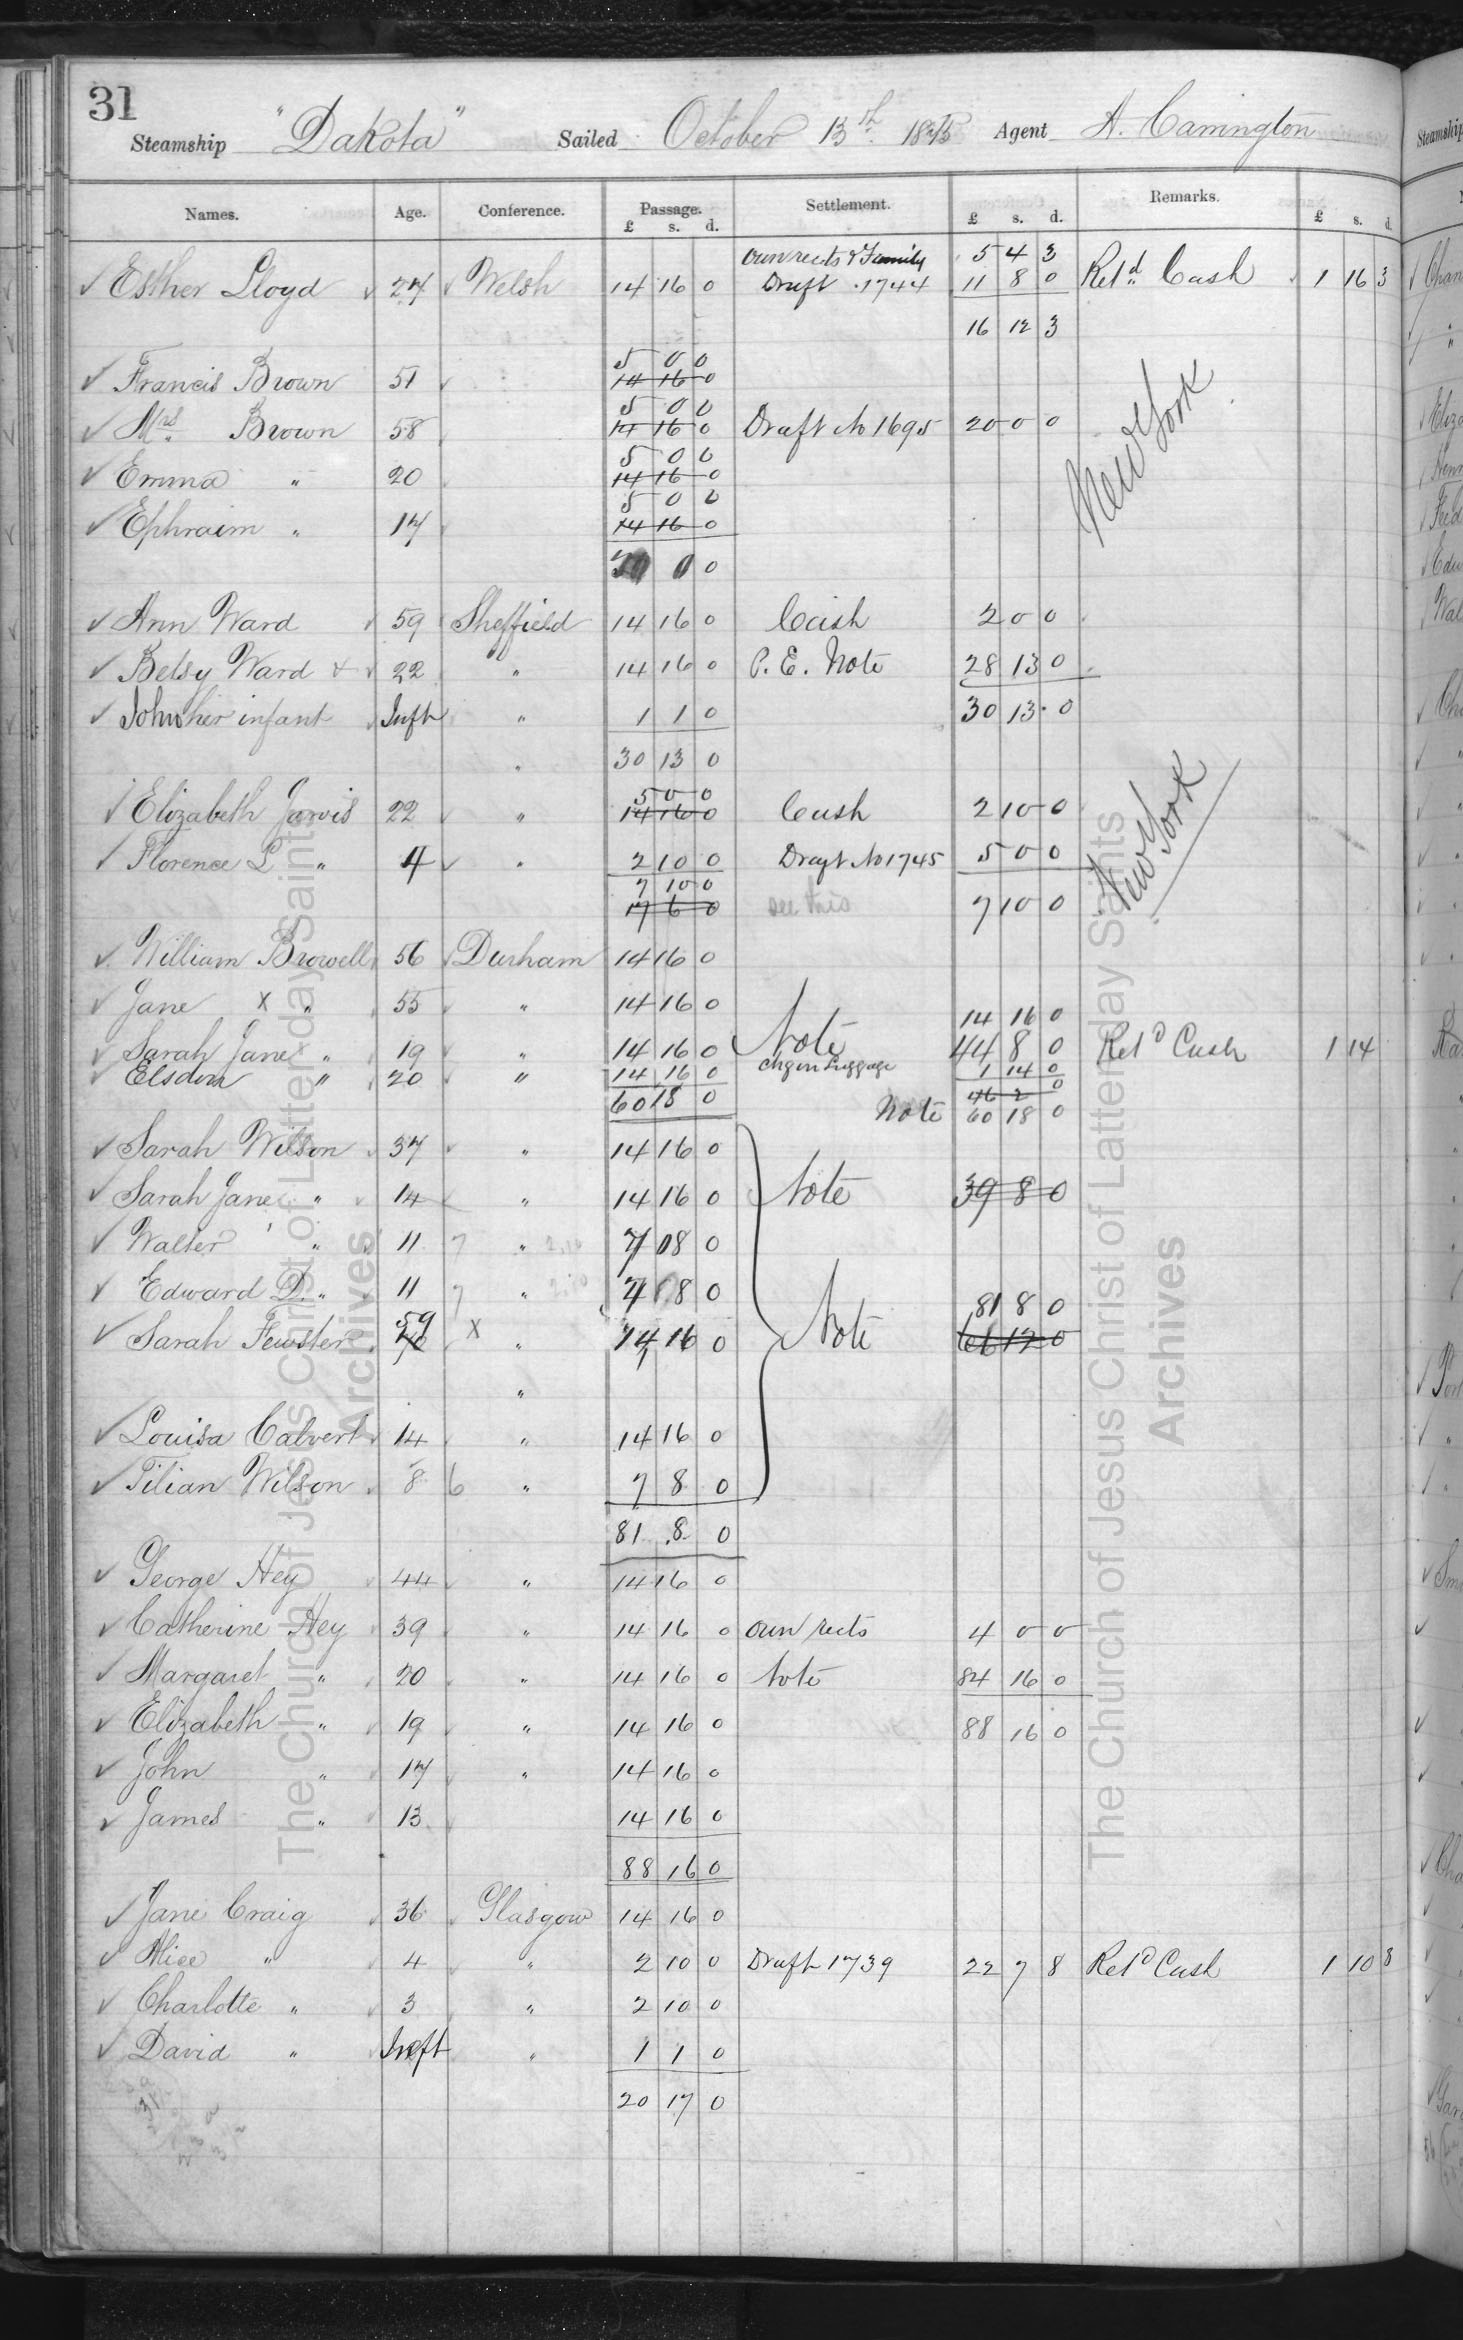 31
Steamship "Dakota" Sailed October 13th 1875 Agent A. Carrington
Names. Age. Conference. Passage. £ s. d. Settlement. £ s. d. Remarks. £ s. d.
own rects & Family 5 4 3
✓ Esther Lloyd 27 Welsh 14 16 0 Draft 1744 11 8 0 Retd Cash 1 16 3
16 12 3
5 0 0
✓ Francis Brown 51 14 16 0
5 0 0
✓ Mrs Brown 58 14 16 0 Draft No 1695 20 0 0 New York
5 0 0
✓ Emma " 20 14 16 0
5 0 0
✓ Ephraim " 17 14 16 0
0 0
✓ Ann Ward 59 Sheffield 14 16 0 Cash 2 0 0
✓ Betsy Ward + 22 " 14 16 0 P. E. Note 28 13 0
✓ John her infant Inft " 1 1 0 30 13 0
" 30 13 0
5 0 0
✓ Elizabeth Jarvis 22 " 14 16 0 Cash 2 10 0 New York
✓ Florence L " 4 " 2 10 0 Draft No 1745 5 0 0
7 10 0
17 6 0 see this 7 10 0
✓ William Browell 56 Durham 14 16 0
✓ Jane x " 55 " 14 16 0
14 16 0
✓ Sarah Jane " 19 " 14 16 0 Note 44 8 0 Retd Cash 1 14
✓ Elsdon " 20 " 14 16 0 Chg on Luggage 1 14 0
46 2 0
60 18 0 Note 60 18 0
✓ Sarah Wilson 37 " 14 16 0
✓ Sarah Jane " 14 " 14 16 0 Note 39 8 0
✓ Walter " 11 7 " 7 8 0
✓ Edward D. " 11 7 " 7 8 0
81 8 0
✓ Sarah Fewster 59 x " 14 16 0 Note 66 12 0
"
✓ Louisa Calvert 14 " 14 16 0
✓ Tilian Wilson 8 6 " 7 8 0
81 8 0
✓ George Hey 44 " 14 16 0
✓ Catherine Hey 39 " 14 16 0 own rects 4 0 0
✓ Margaret " 20 " 14 16 0 Note 84 16 0
✓ Elizabeth " 19 " 14 16 0 88 16 0
✓ John " 17 " 14 16 0
✓ James " 13 14 16 0
88 16 0
✓ Jane Craig 36 Glasgow 14 16 0
✓ Alice " 4 " 2 10 0 Draft 1739 22 7 8 Retd Cash 1 10 8
✓ Charlotte " 3 " 2 10 0
✓ David " Inft " 1 1 0
20 17 0
The Church of Jesus Christ of Latter-day Saints
Archives
The Church of Jesus Christ of Latter-day Saints
Archives
Steamship